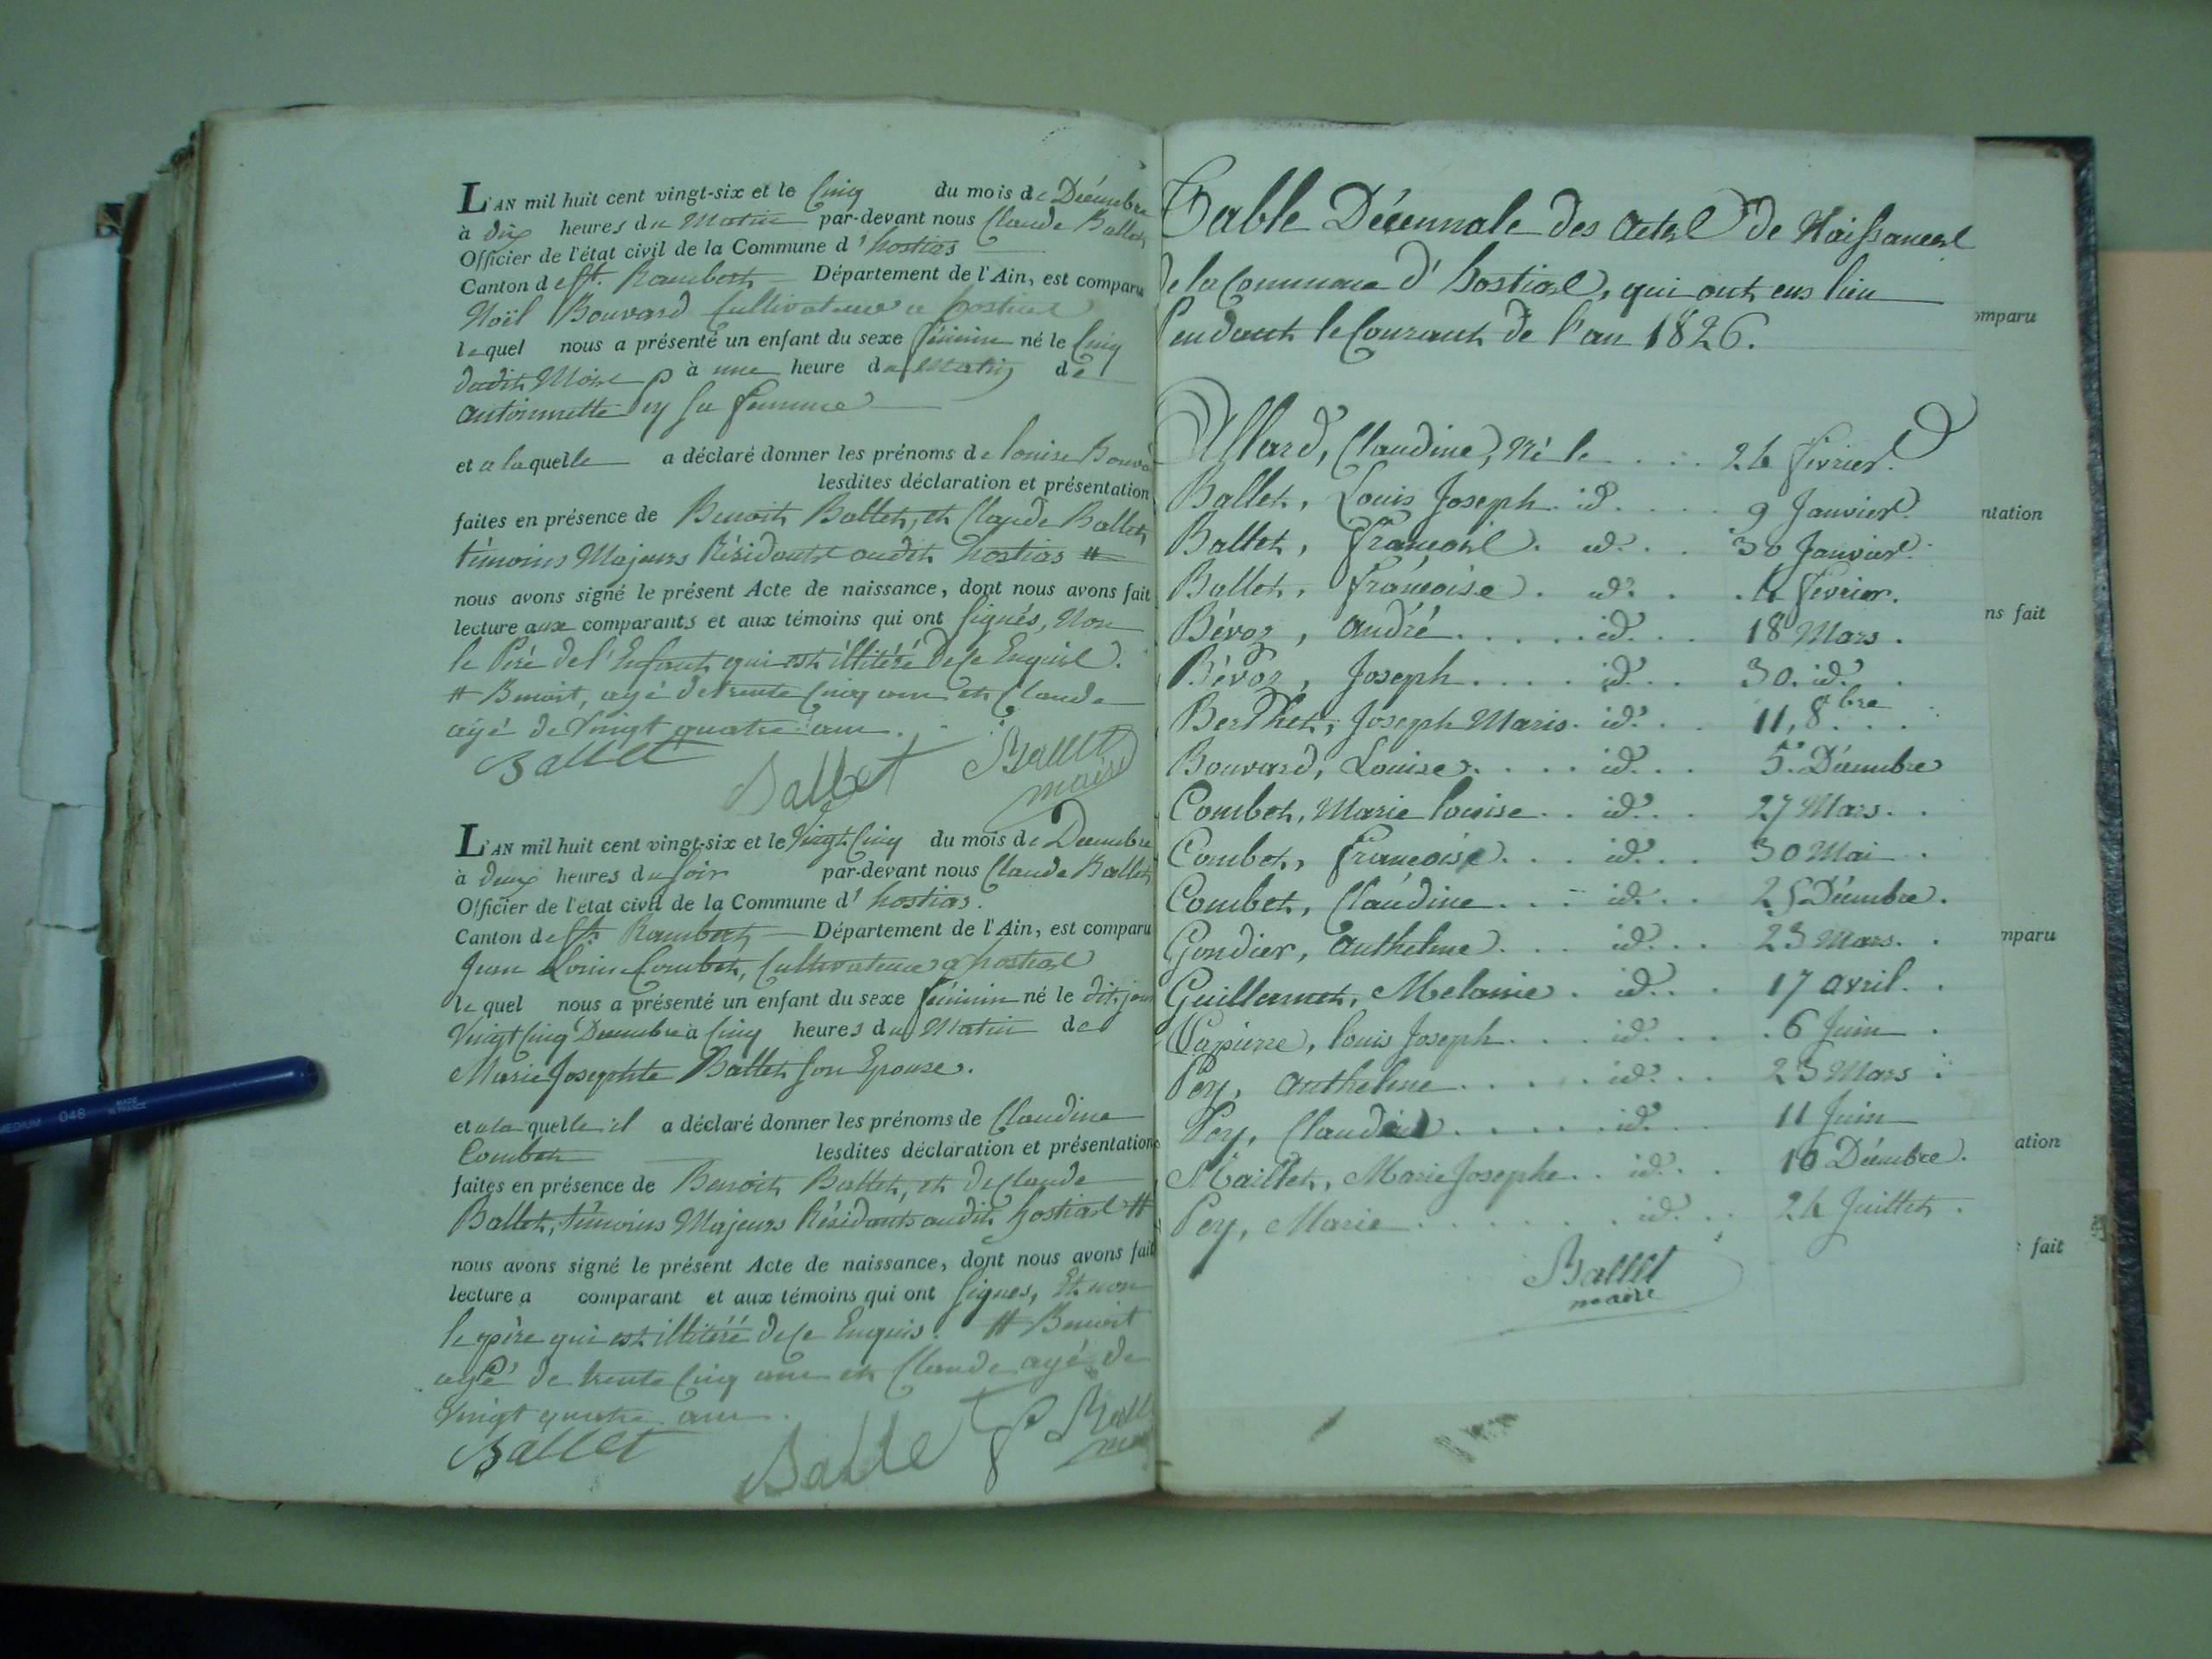 L'AN mil huit cent vingt-six et le Cinq du mois de Décembre
à dix heures du Matin par-devant nous Claude Ballet
Officier de l'état civil de la Commune d'hostias
Canton de St. Rambert Département de l'Ain, est comparu
Noël Bouvard Cultivateur a hostias
lequel nous a présenté un enfant du sexe féminin né le Cinq
dudit Mois à une heure du Matin de
antoinette Pey sa femme
et a laquelle a déclaré donner les prénoms de louise Bouvard
lesdites déclaration et présentation
faites en présence de Benoit Ballet, et Claude Ballet
témoins Majeurs Résidants audit hostias #
nous avons signé le présent Acte de naissance, dont nous avons fait
lecture aux comparants et aux témoins qui ont signés, Non
le Peré de l'Enfant qui est illitéré de ce Enquis.
# Benoit, agé de trente Cinq ans et Claude
agé de Vingt quatre ans.
Ballet Ballet Ballet
maire
L'AN mil huit cent vingt-six et le Vingt Cinq du mois de Decembre
à deux heures du soir par-devant nous Claude Ballet
Officier de l'état civil de la Commune d'hostias.
Canton de St. Rambert Département de l'Ain, est comparu
Jean Louis Combet, Cultivateur a hostias
lequel nous a présenté un enfant du sexe féminin né le dit jour
Vingt Cinq Decembre à Cinq heures du Matin de
Marie Josephte Ballet son Epouse.
et a laquelle il a déclaré donner les prénoms de Claudine
Combet lesdites déclaration et présentation
faites en présence de Benoit Ballet, et de Claude
Ballet, témoins Majeurs Résidants audit hostias #
nous avons signé le présent Acte de naissance, dont nous avons fait
lecture a comparant et aux témoins qui ont signés, Et non
le père qui est illitéré de ce Enquis. # Benoit
agé de trente Cinq ans et Claude agé de
Vingt quatre ans.
Ballet Ballet Ball
Table Décennale des actes de Naissances
de la Commune d'hostias, qui ont eus lieu
Pendant le Courant de l'an 1826.
Allard, Claudine, Né le 24 févriér.
Ballet, Louis Joseph id. 9 Janvier.
Ballet, François. id. 30 Janvier.
Ballet, Françoise. id. 4 février.
Bévoz, andré id. 18 Mars.
Bévoz, Joseph id. 30. id.
Berthet, Joseph Marie. id. 11, 8bre
Bouvard, Louise id. 5. Décembre
Combet, Marie louise id. 27 Mars.
Combet, françoise id. 30 Mai
Combet, Claudine id. 25 Décembre.
Gondier, anthelme id. 23 Mars.
Guillermet, Melanie. id. 17 avril.
Lapierre, louis Joseph id. 6 Juin
Pey, anthelme id. 23 Mars
Pey, id. 11 Juin
Maillet, Marie Josephe id. 10 Décembre.
Pey, Marie id. 24 Juillet.
Ballet
maire
omparu
ntation
ns fait
mparu
ation
fait
MEDIUM 048 MADE IN FRANCE